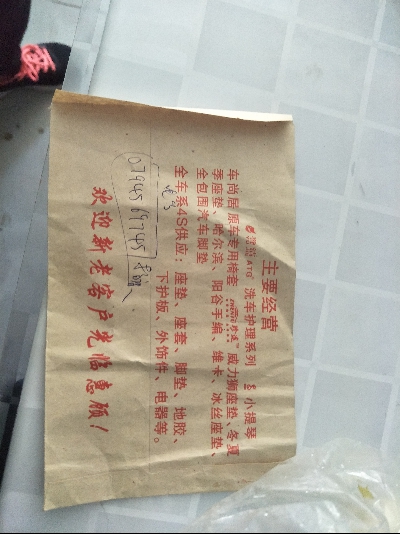 主要经营
ATG 洗车护理系列 小提琴
车尚居 原车专用椅套 威力狮座垫、冬夏
季座垫、哈尔滨、阳谷手编、雄卡、冰丝座垫、
全包围汽车脚垫
全车系4S供应：座垫、座套、脚垫、地胶、
下护板、外饰件、电器等。
欢迎新老客户光临惠顾！